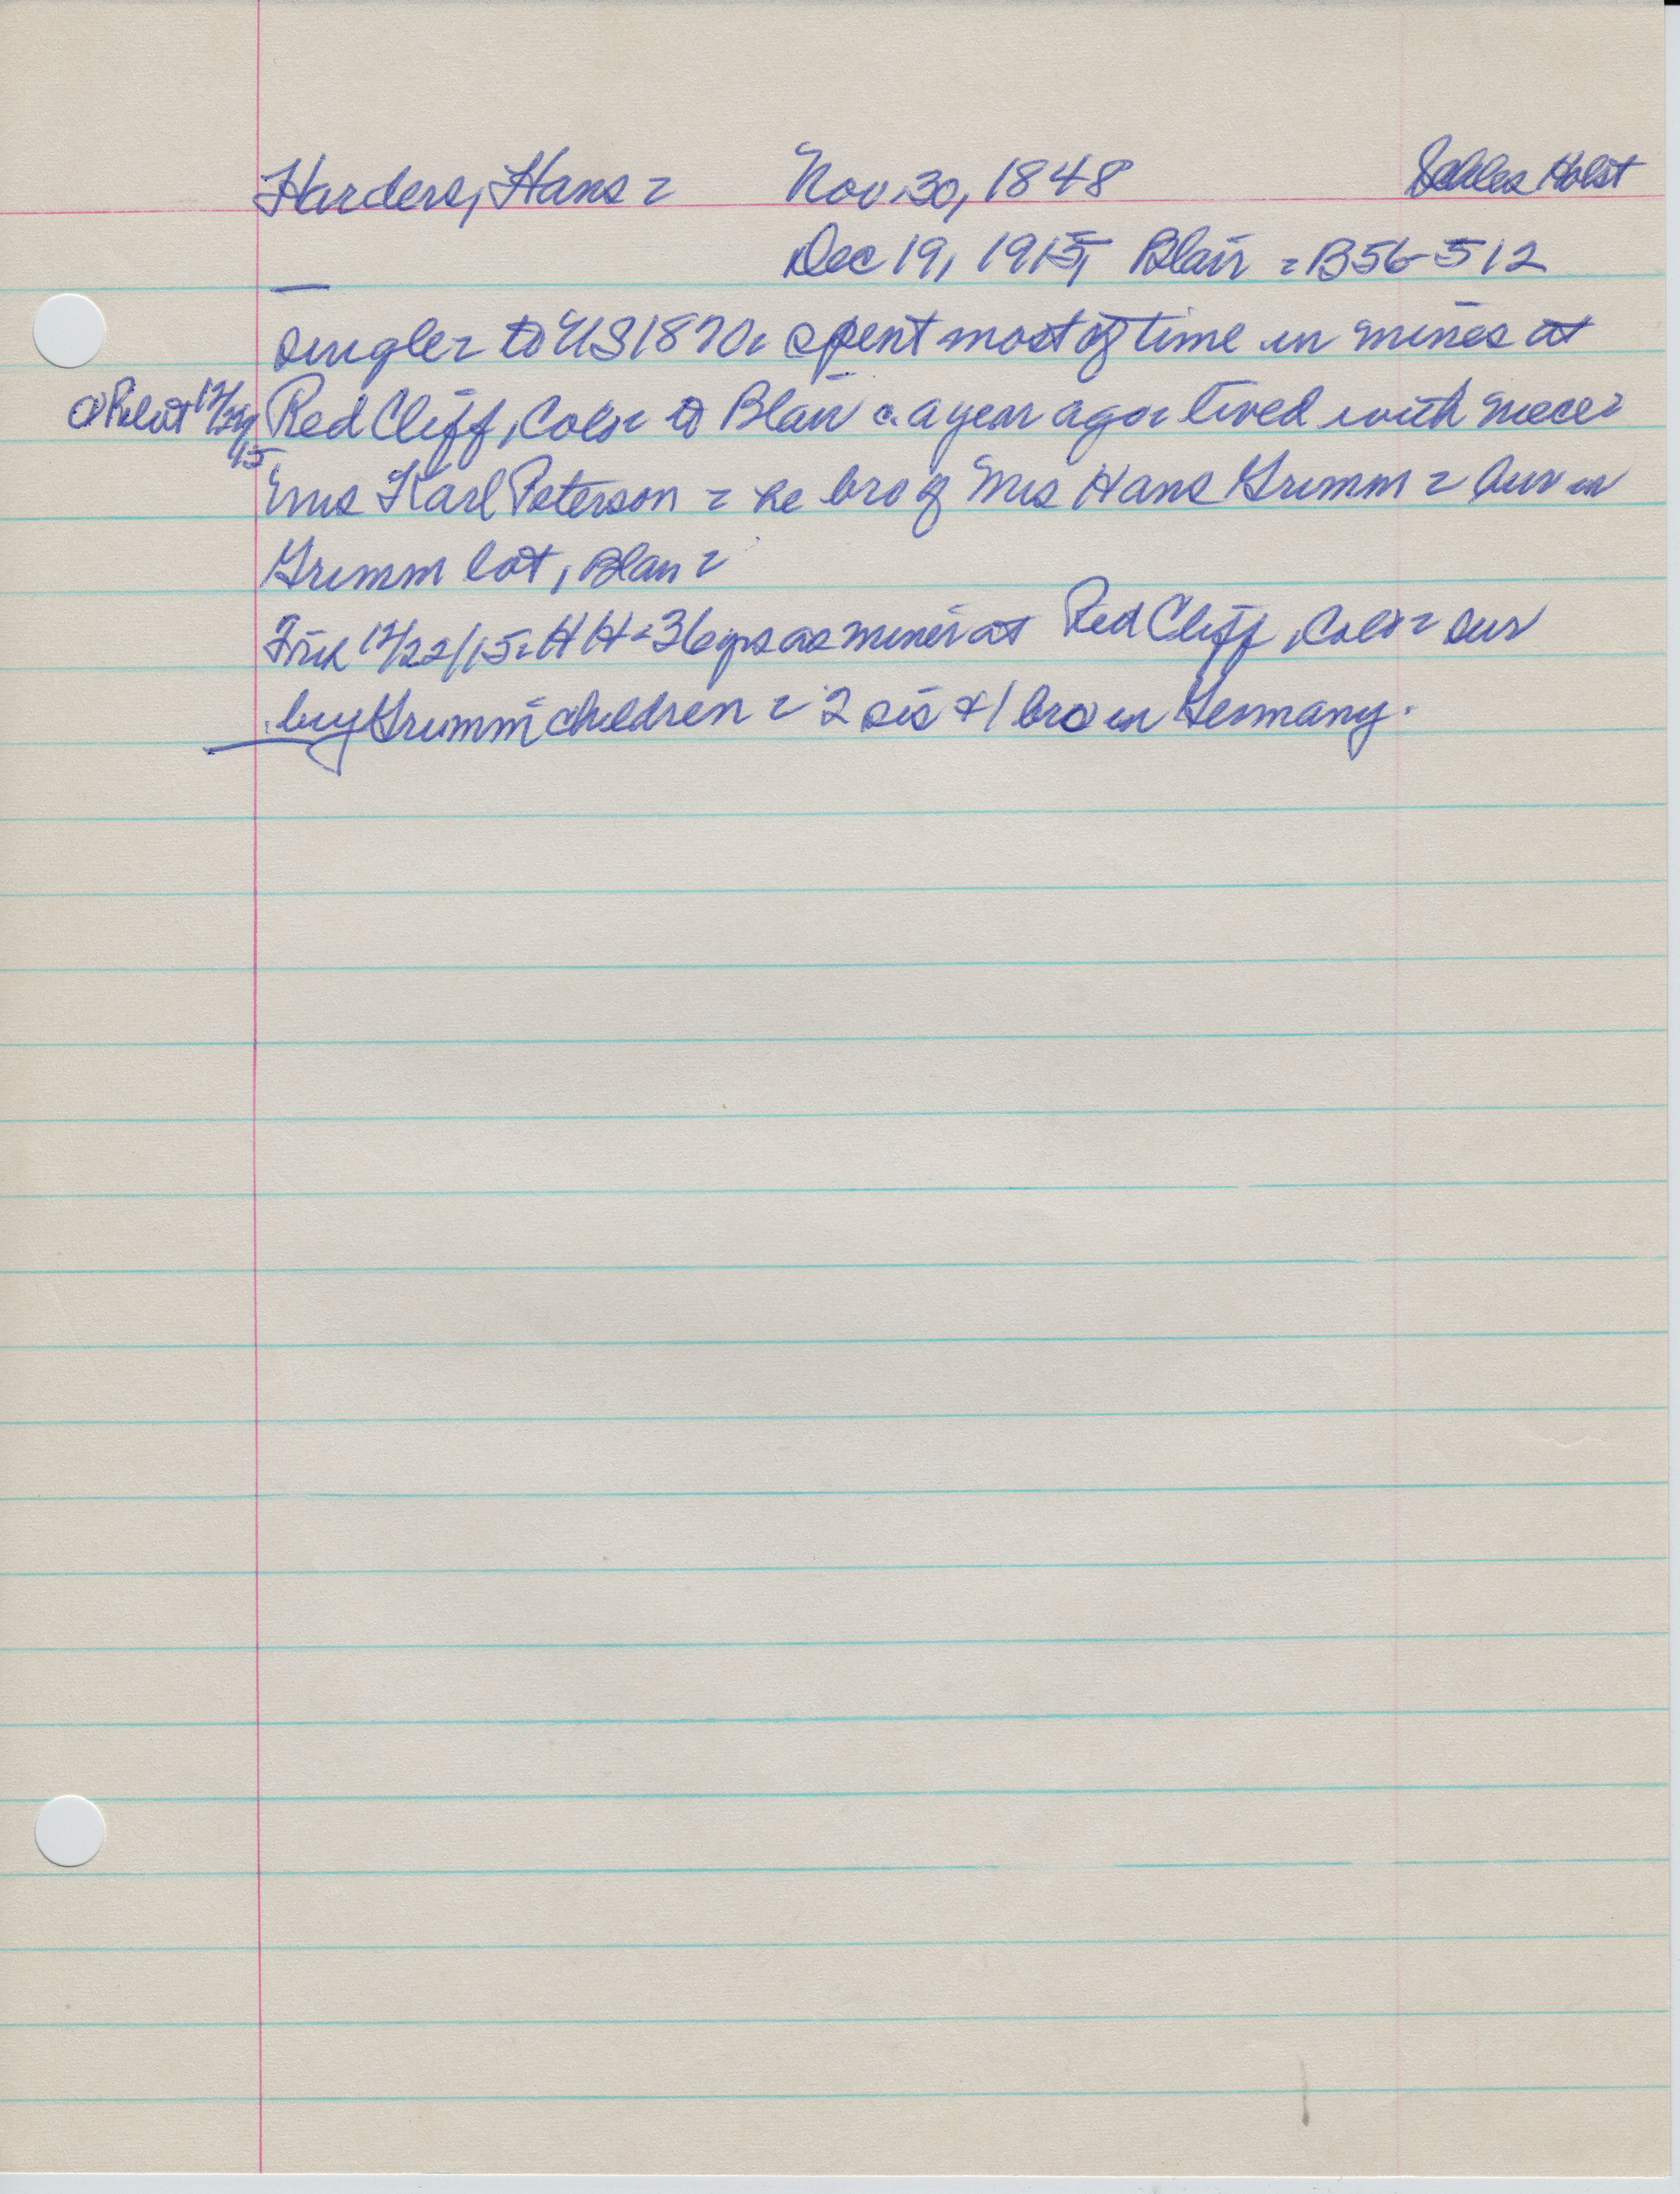 Harders, Hans = Nov 30, 1848 Schles Holst
Dec 19, 1915, Blair = B56-512
single = to US 1870 = spent most of time in mines at
Pilot 12/29/15 Red Cliff, Colo = to Blair c. a year ago = lived with niece =
Mrs Karl Peterson = he bro of Mrs Hans Grimm = bur in
Grimm lot, Blair =
Trib 12/22/15 = HH = 36 yrs as miner at Red Cliff, Colo = sur
by Grimm children = 2 sis + 1 bro in Germany.